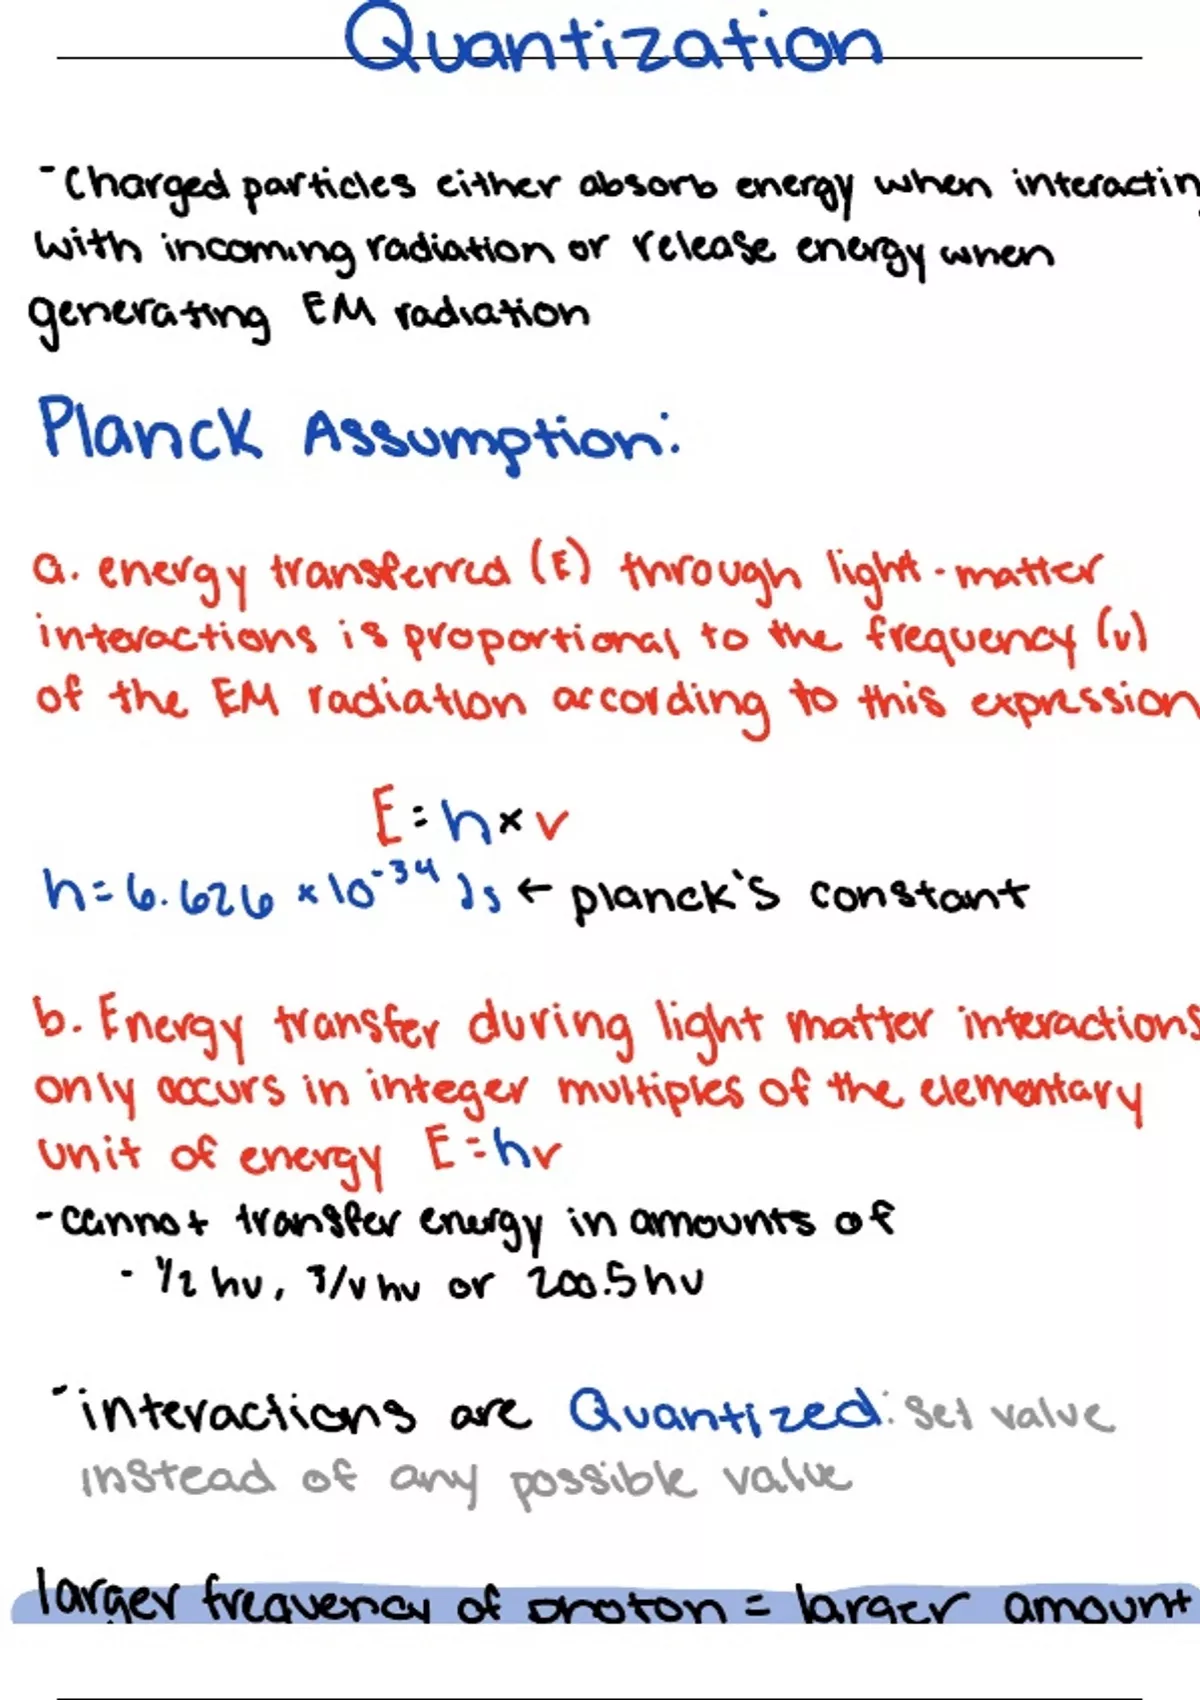 Quantization
- Charged particles either absorb energy when interactin
with incoming radiation or release energy when
generating EM radiation
Planck Assumption:
a. energy transferred (E) through light-matter
interactions is proportional to the frequency (ν)
of the EM radiation according to this expression
E = h × ν
h = 6.626 × 10⁻³⁴ Js ← planck's constant
b. Energy transfer during light matter interactions
only occurs in integer multiples of the elementary
unit of energy E = hν
- cannot transfer energy in amounts of
- 1/2 hν, 3/ν hν or 200.5 hν
- interactions are Quantized: set value
instead of any possible value
larger frequency of proton = larger amount